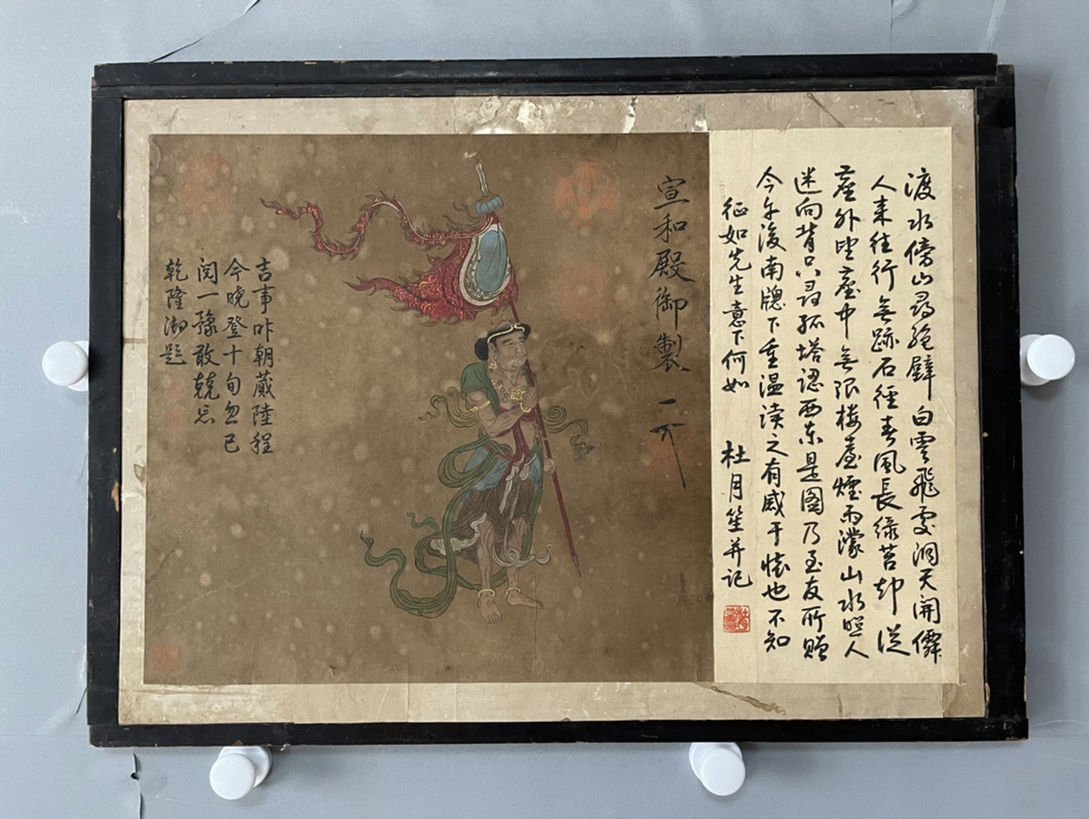 渡水傍山尋絕壁白雲飛處洞天開僊
人来往行無跡石徑春風長綠苔却從
塵外望塵中無限樓臺煙雨濛山水照人
迷向背只尋孤塔認西东是图乃至友所赠
今午後南牕下重温读之有感于懷也不知
征如先生意下何如 杜月笙并记
宣和殿御製
吉事昨朝蕆陸程
今曉登十旬忽已
閱一豫敢兢忘
乾隆御题